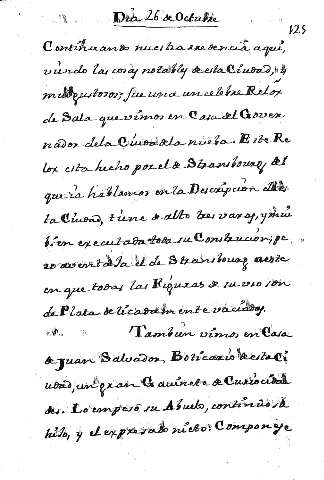 Dia 26 de Octubre
125
Continuando nuestra recidencia aqui,
viendo las cosas notables de esta Ciudad, y
mui gustosos; fue una un celebre Relox
de Sala que vimos en Casa del Gover-
nador de la Ciudadela nueba. Este Re
lox esta hecho por el de Stransbourg de q
que ia hablamos en la Descripcion de
la Ciudad, tiene de alto tres varas, y mui
bien executada toda su Construcion; pe
ro aventaja el de Stransbourg a este
en que todas las Figuras de su uso son
de Plata delicadamente vaciadas.
Tambien vimos en Casa
de Juan Salvador, Boticario de esta Ci
udad, un gran Gavinete de Curiocida
des. Lo empesó su Abuelo, continuó su
hijo, y el expresado nieto. Componese